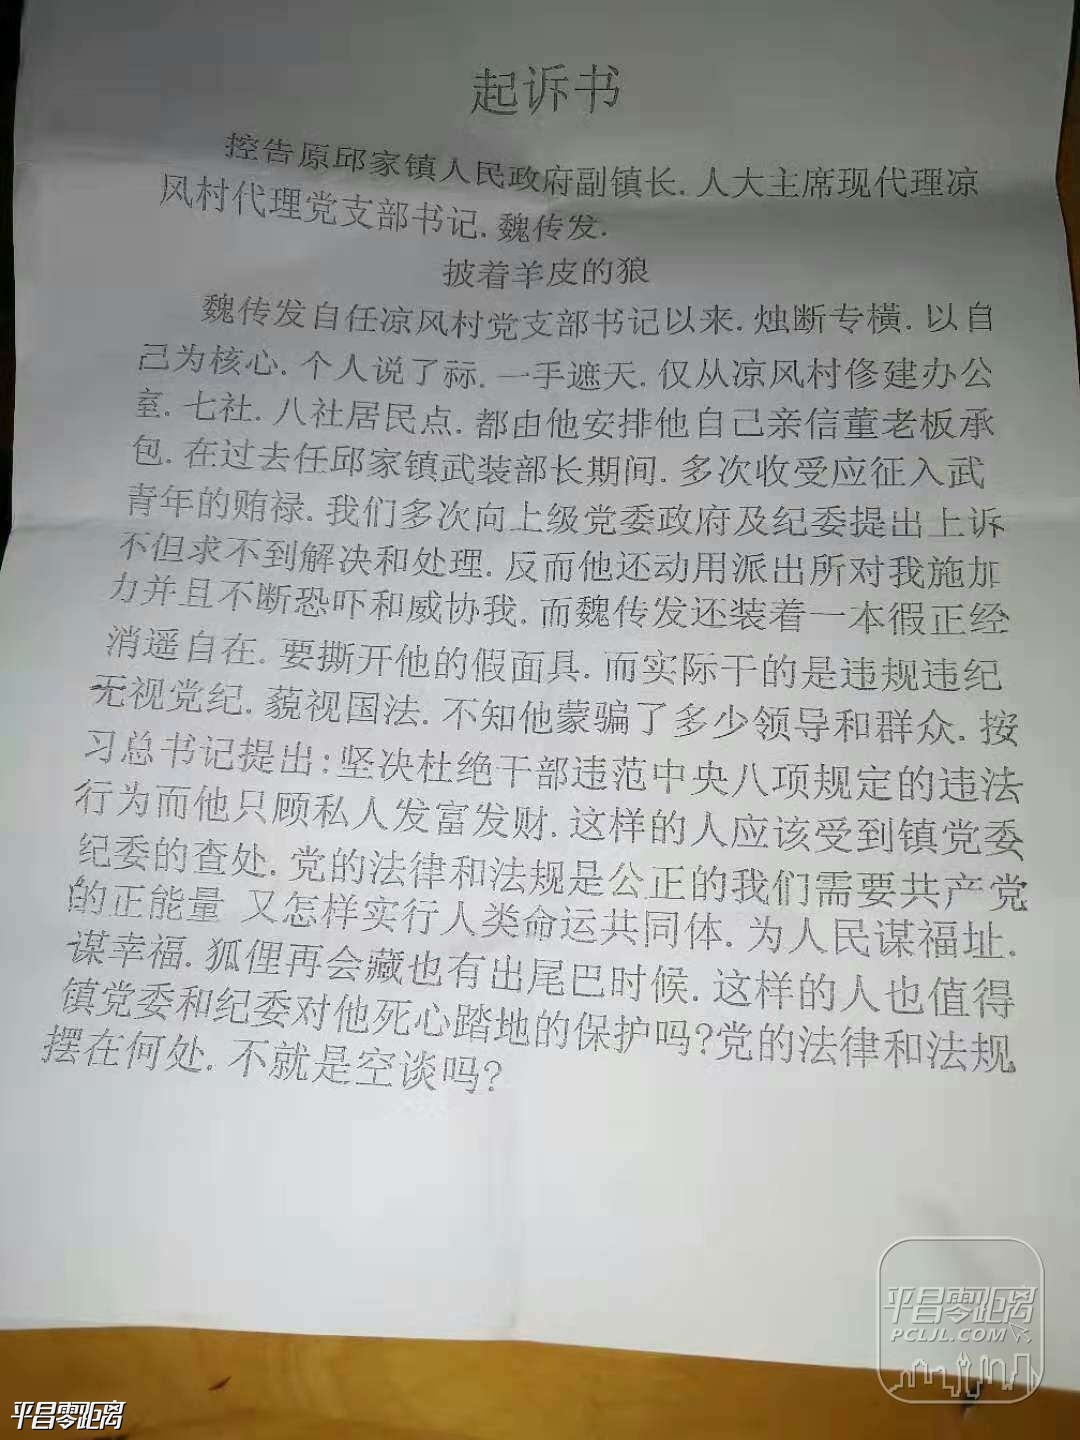 起诉书
控告原邱家镇人民政府副镇长.人大主席现代理凉
风村代理党支部书记.魏传发.
披着羊皮的狼
魏传发自任凉风村党支部书记以来.烛断专横.以自
己为核心.个人说了祘.一手遮天.仅从凉风村修建办公
室.七社.八社居民点.都由他安排他自己亲信董老板承
包.在过去任邱家镇武装部长期间.多次收受应征入武
青年的贿禄.我们多次向上级党委政府及纪委提出上诉
不但求不到解决和处理.反而他还动用派出所对我施加
力并且不断恐吓和威协我.而魏传发还装着一本徦正经
消遥自在.要撕开他的假面具.而实际干的是违规违纪
无视党纪.藐视国法.不知他蒙骗了多少领导和群众.按
习总书记提出:坚决杜绝干部违范中央八项规定的违法
行为而他只顾私人发富发财.这样的人应该受到镇党委
纪委的查处.党的法律和法规是公正的我们需要共产党
的正能量 又怎样实行人类命运共同体.为人民谋福址.
谋幸福.狐狸再会藏也有出尾巴时候.这样的人也值得
镇党委和纪委对他死心踏地的保护吗?党的法律和法规
摆在何处.不就是空谈吗?
平昌零距离
PCLJL.COM
平昌零距离